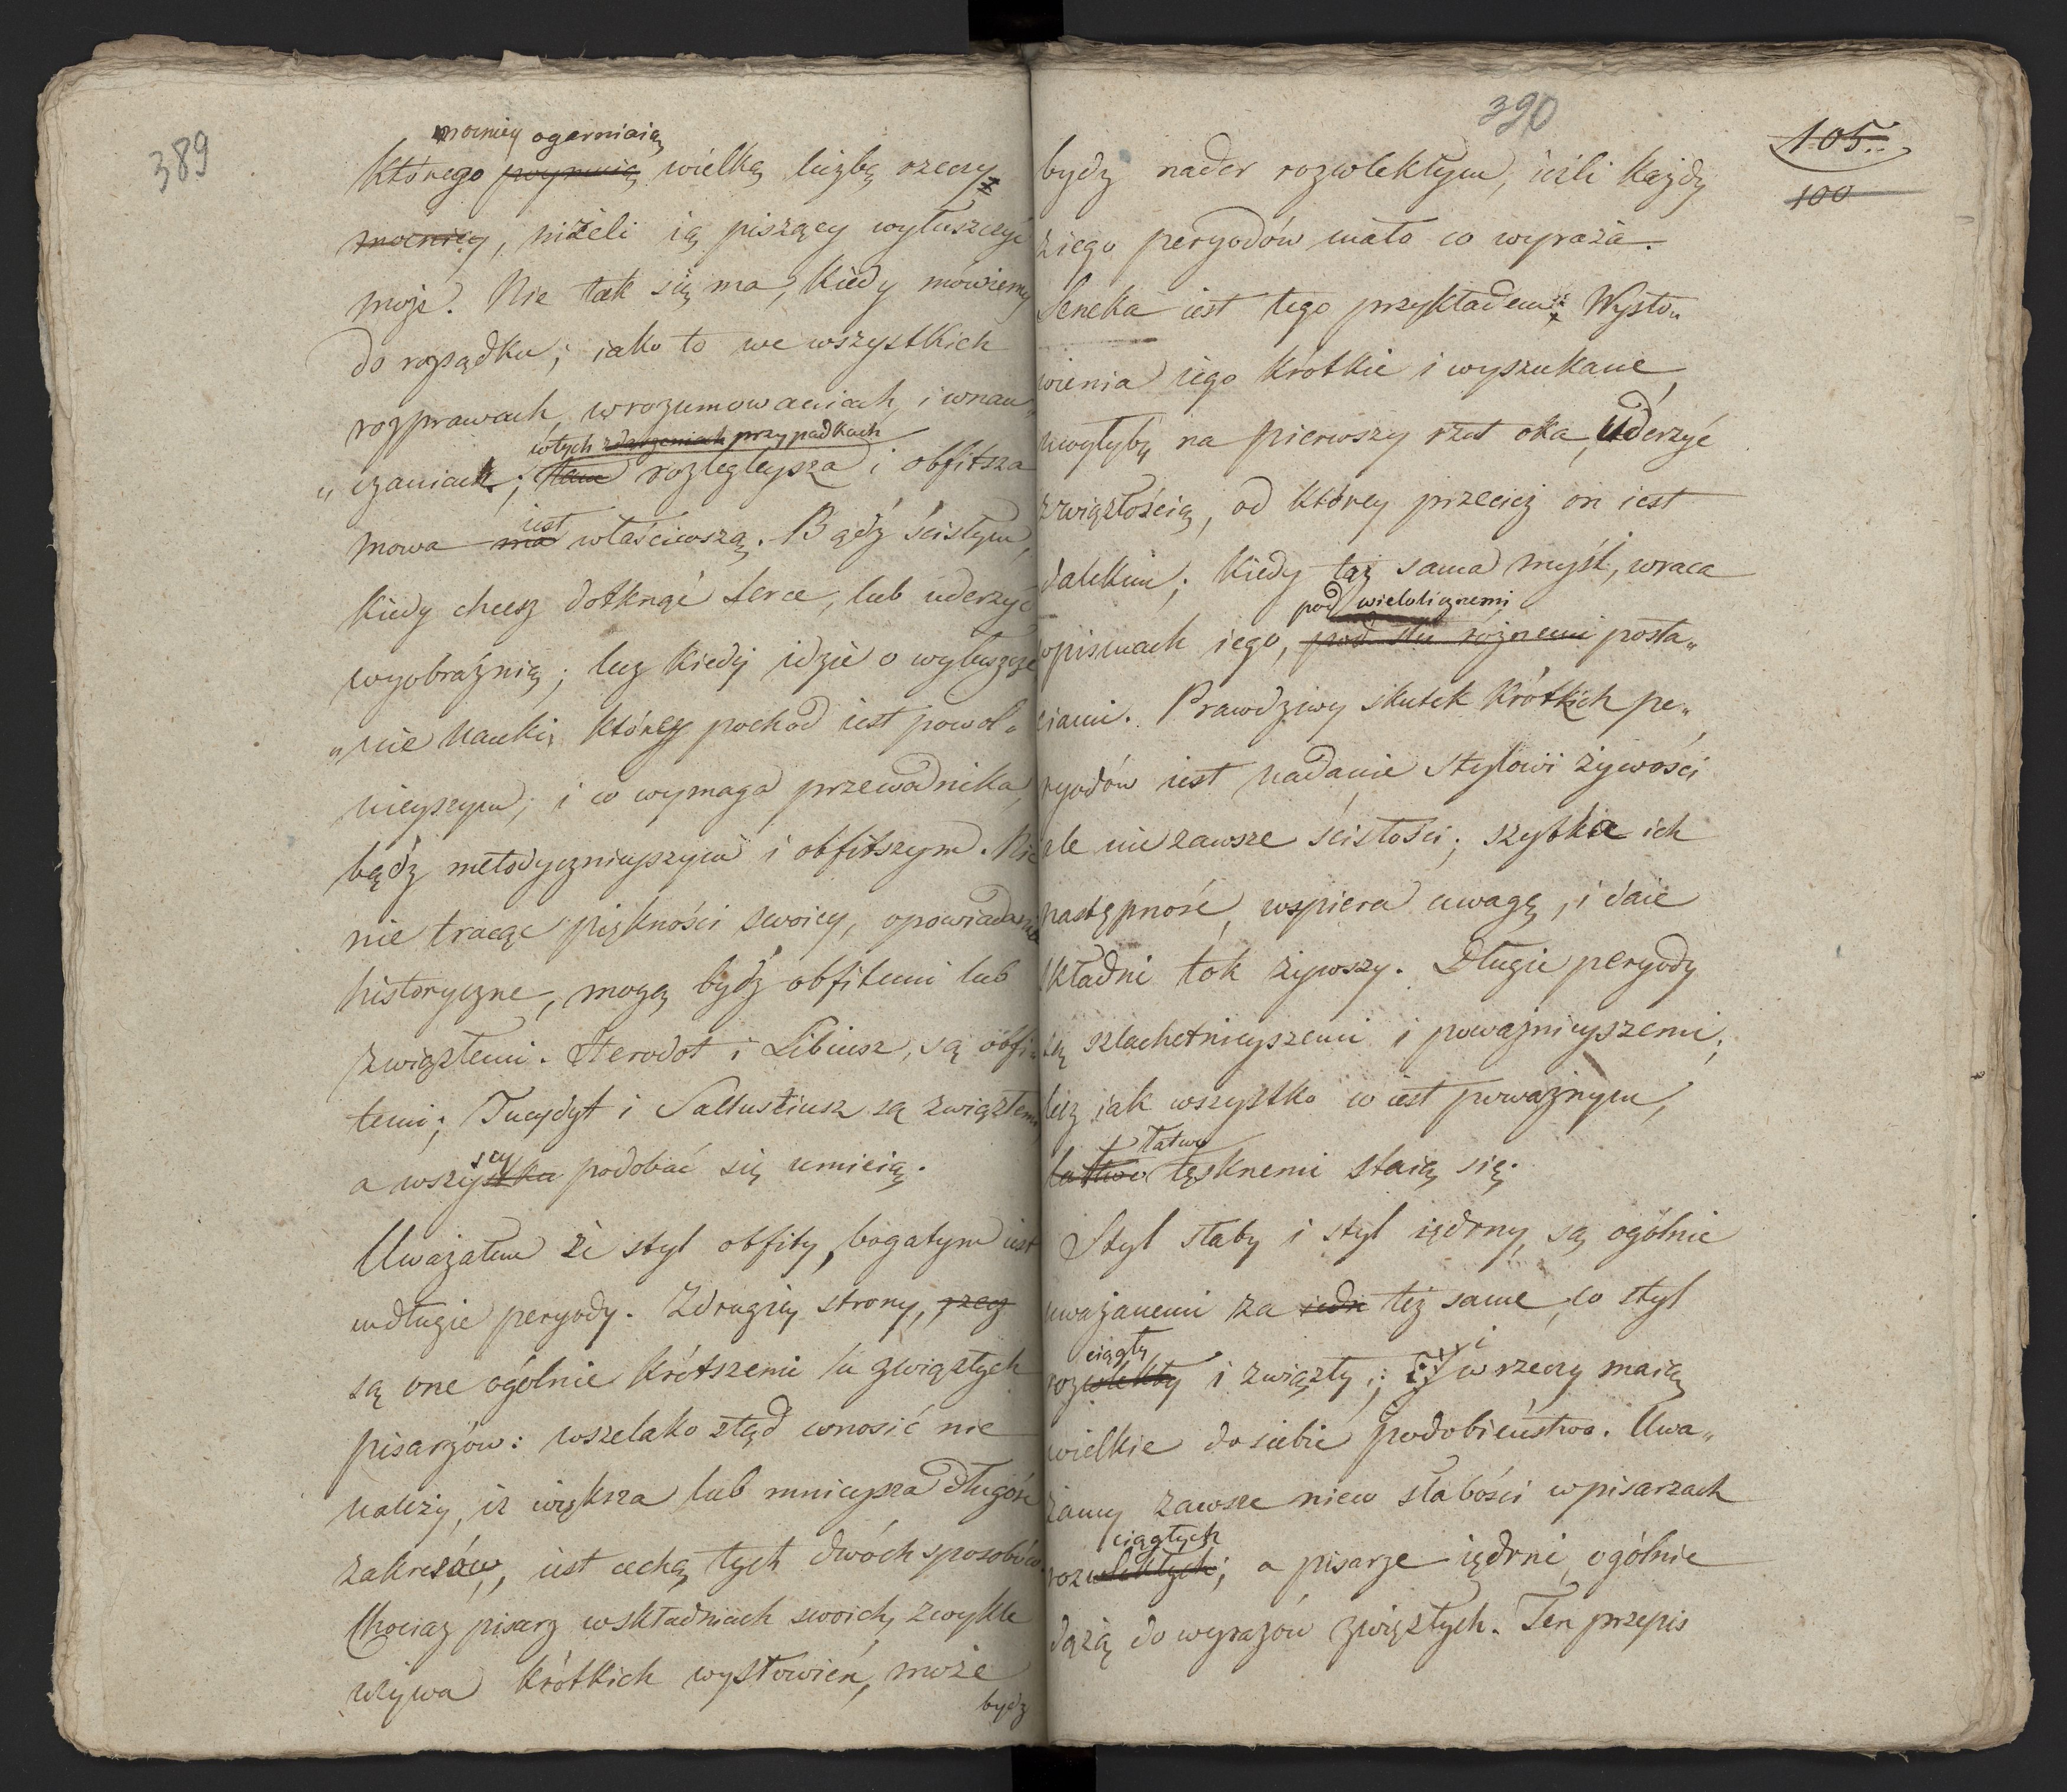 389
mocniey ogarniaią
którego poymuią wielką liczbę rzeczy,
mocniey, niżeli ią piszący wyłuszczyć
może. Nie tak się ma, kiedy mówiemy
do rozsądku; iako to we wszystkich
rozprawach, w rozumowaniach, i w nau„
w tych zdarzeniach przypadkach
„czaniach; tam rozlegleysza i obfitsza
iest
mowa ma właściwszą. Bądź ścisłym,
kiedy chcesz dotknąć serce, lub uderzyć
wyobraźnią; lecz kiedy idzie o wyłuszcze
„nie nauki, którey pochod iest powol„
nieyszym; i co wymaga przewodnika,
bądź metodycznieyszym i obfitszym. Nic
nie tracąc piękności swoiey, opowiadania
historyczne, mogą bydź obfitemi lub
zwięzłemi. Herodot i Libiusz, są obfi„
temi; Tucydyt i Sallustiusz są zwięzłemi,
scy
a wszystko podobać się umieią.
Uważałem że styl obfity, bogatym iest
w długie peryody. Z drugiey strony, rzecz
są one ogólnie krótszemi u zwięzłych
pisarzów: wszelako ztąd wnosić nie
należy, iż większa lub mnieysza długość
zakresów, iest cechą tych dwóch sposobów.
Chociaż pisarz w składniach swoich, zwykle
używa krótkich wysłowień, może
bydź
390
105.
100
bydź nader rozwlekłym, ieżli każdy
z iego peryodów mało co wyraża.
Seneka iest tego przykładem: Wysło„
wienia iego krótkie i wyszukane,
mogłyby na pierwszy rzut oka, uderzyć
zwięzłością, od którey przecież on iest
dalekim; kiedy taż sama myśl, wraca
pod wielolicznemi
w pismach iego, pod stu rożnemi posta„
ciami. Prawdziwy skutek krótkich pe„
ryodów iest nadanie stylowi żywości
ale nie zawsze ścisłości; szybka ich
następność, wspiera uwagę, i daie
składni tok żywszy. Długie peryody
są szlachetnieyszemi i poważnieyszemi;
lecz iak wszystko co iest poważnym,
łatwo
łatwo tęsknemi staią się.
Styl słaby i styl iędrny, są ogólnie
uważanemi za iedn też same, co styl
ciągły
rozwlekły i zwięzły; i w rzeczy maią
wielkie do siebie podobieństwo. Uwa„
żamy zawsze niew słabości w pisarzach
ciągłych
rozwlekłych; a pisarze iędrni, ogólnie
dążą do wyrazów zwięzłych. Ten przepis